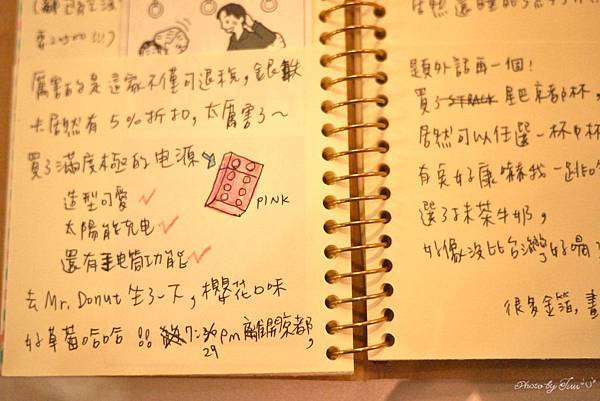 厲害的是這家不僅可退稅，銀獸
卡居然有5%折扣，太厲害了～
買了滿度極高的电源
造型可愛
太陽能充电
還有手电筒功能
PINK
去Mr. Donut 坐了一下，櫻花口味
好草莓哈哈!! 7:30pm離開京都，
29
題外話再一個!
買了STRACK 星巴京都杯，
居然可以任選一杯中杯
有夠好康嚇我一跳
選了抹茶牛奶，
好像沒比台灣好喝
很多金箔，畫
Photo by Tiun